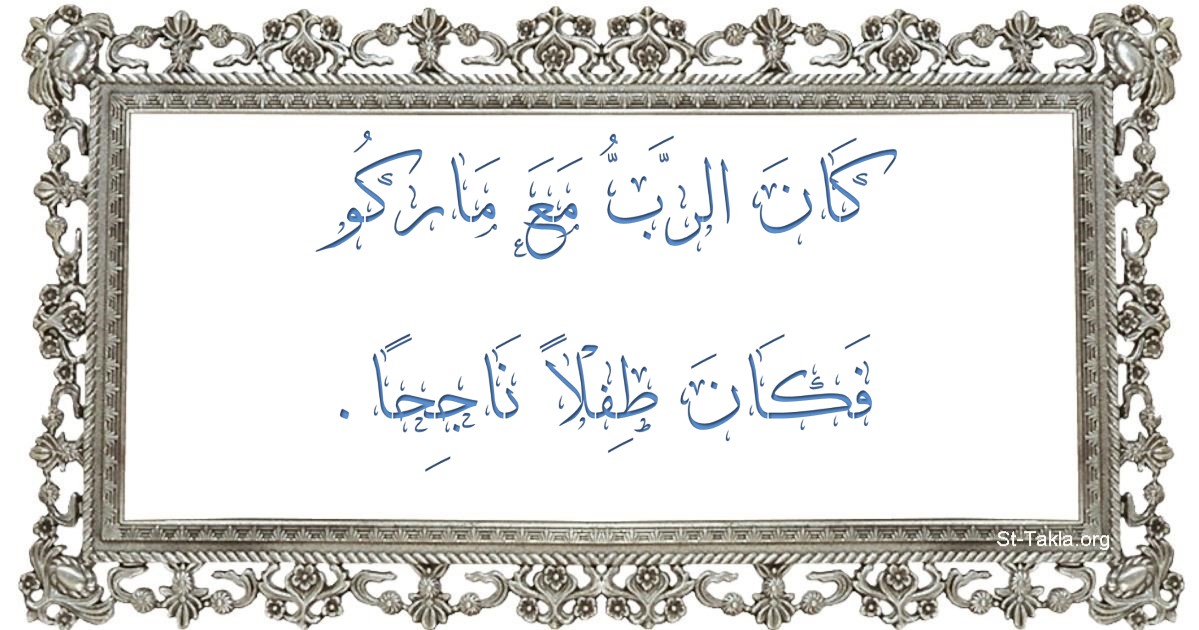 كَانَ الرَّبُّ مَعَ مَاركُو
فَكَانَ طِفْلاً نَاجِحًا .
St-Takla.org